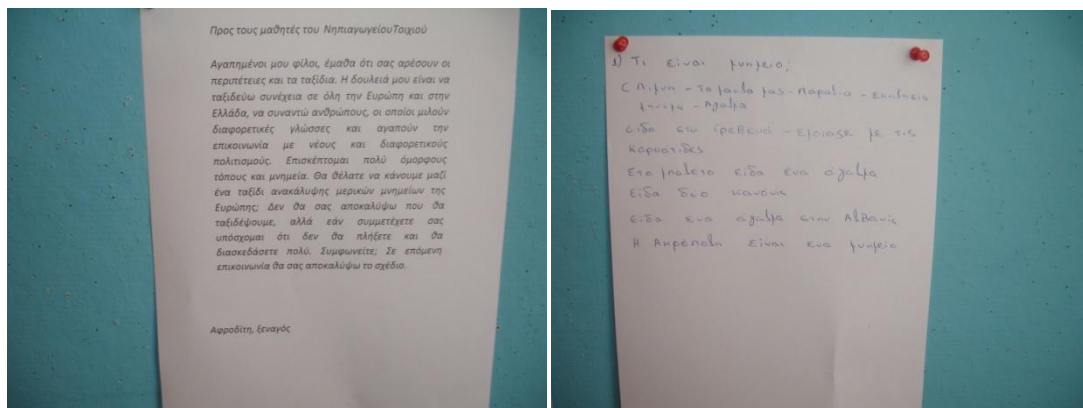 Προς τους μαθητές του ΝηπιαγωγείουΤοιχιού
Αγαπημένοι μου φίλοι, έμαθα ότι σας αρέσουν οι
περιπέτειες και τα ταξίδια. Η δουλειά μου είναι να
ταξιδεύω συνέχεια σε όλη την Ευρώπη και στην
Ελλάδα, να συναντώ ανθρώπους, οι οποίοι μιλούν
διαφορετικές γλώσσες και αγαπούν την
επικοινωνία με νέους και διαφορετικούς
πολιτισμούς. Επισκέπτομαι πολύ όμορφους
τόπους και μνημεία. Θα θέλατε να κάνουμε μαζί
ένα ταξίδι ανακάλυψης μερικών μνημείων της
Ευρώπης; Δεν θα σας αποκαλύψω που θα
ταξιδέψουμε, αλλά εάν συμμετέχετε σας
υπόσχομαι ότι δεν θα πλήξετε και θα
διασκεδάσετε πολύ. Συμφωνείτε; Σε επόμενη
επικοινωνία θα σας αποκαλύψω το σχέδιο.
Αφροδίτη, ξεναγός
1) Τι είναι μνημείο;
μας - Παραλία - Εκκλησία
μνήμα - Αγαλμα
είδα στα Γρεβενά - έμοιαζε με τις
καρυάτιδες
είδα ενα άγαλμα
Είδα δύο κανόνια
είδα ενα άγαλμα στην Αλβανία
Η Ακρόπολη είναι ενα μνημείο